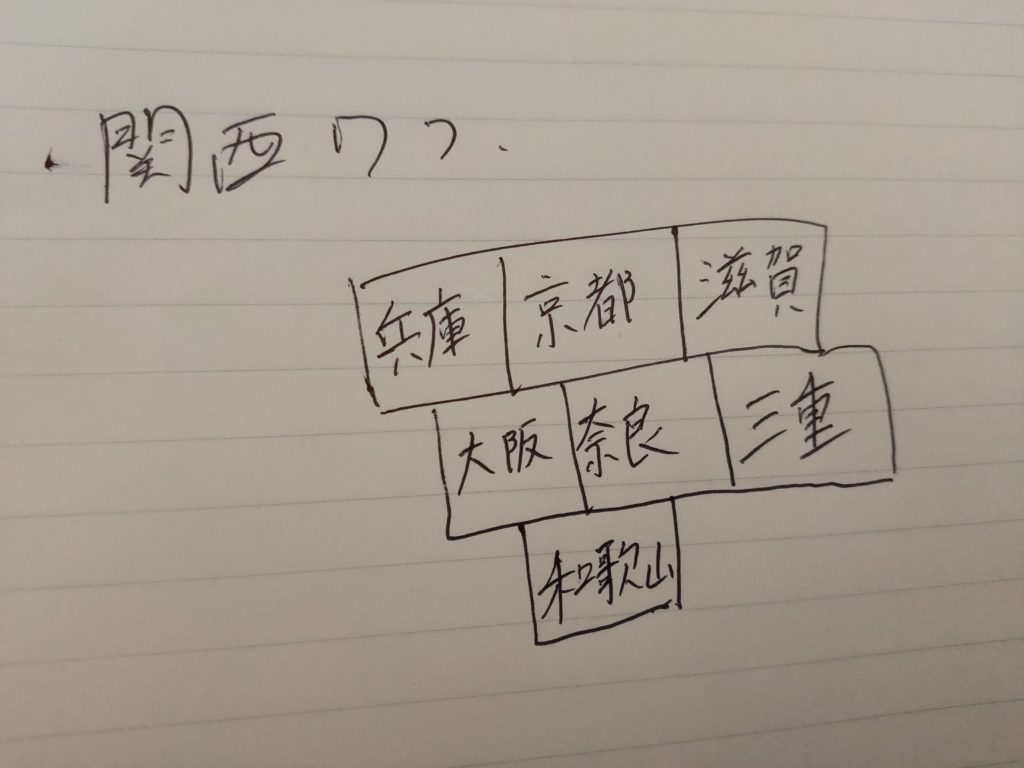 ・関西7つ.
兵庫 京都 滋賀
大阪 奈良 三重
和歌山